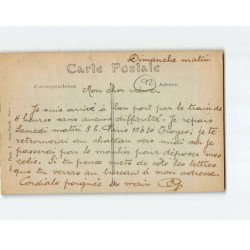 Dimanche matin
Carte Postale
Correspondance Adresse
Mon cher vieux.
92
Je suis arrivé à bon port par le train de
4 heures sans aucune difficulté. Je repars
Samedi matin 8 h. Paris 10h30 Troyes; je te
retrouverai au chateau vers midi car je
passerai par le moulin pour déposer mes
colis. Si tu peux mets de côté les lettres
que tu verras au bureau à mon adresse.
Cordiale poignée de main